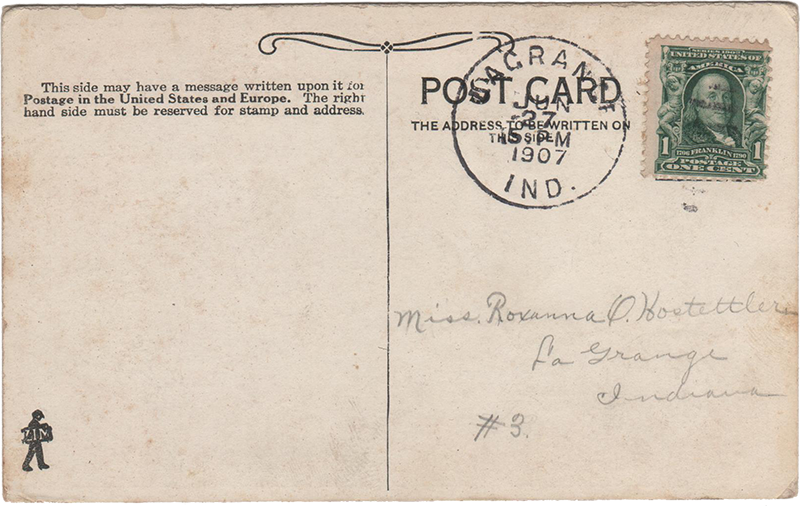 This side may have a message written upon it for
Postage in the United States and Europe. The right
hand side must be reserved for stamp and address.
POST CARD
THE ADDRESS TO BE WRITTEN ON
THIS SIDE
LAGRANGE
JUN
27
5 PM
1907
IND.
SERIES 1902
UNITED STATES OF
AMERICA
1706 FRANKLIN 1790
1 POSTAGE 1
ONE CENT
Miss. Roxanna O. Hostettler
La Grange
Indiana
#3.
ZIM